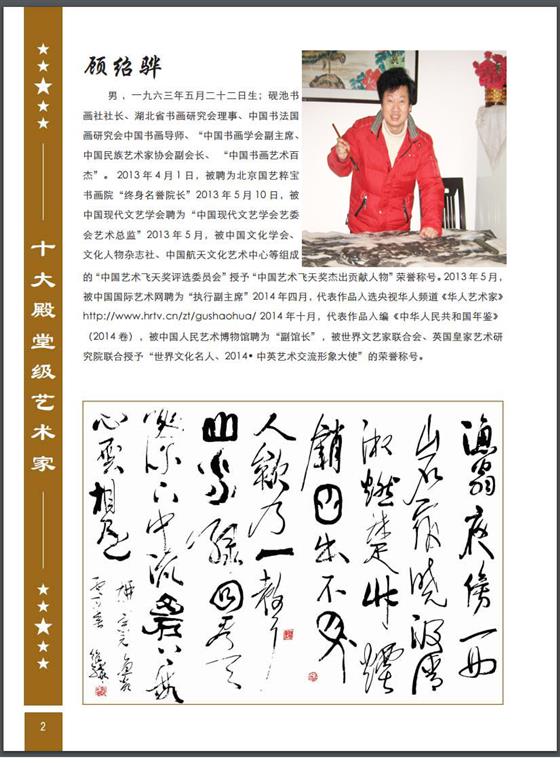 十大殿堂级艺术家
顾绍骅
男，一九六三年五月二十二日生；砚池书
画社社长、湖北省书画研究会理事、中国书法国
画研究会中国书画导师、“中国书画学会副主席、
中国民族艺术家协会副会长、 “中国书画艺术百
杰”。2013年4月1日，被聘为北京国艺粹宝
书画院“终身名誉院长”2013年5月10日，被
中国现代文艺学会聘为“中国现代文艺学会艺委
会艺术总监”2013年5月，被中国文化学会、
文化人物杂志社、中国航天文化艺术中心等组成
的“中国艺术飞天奖评选委员会”授予“中国艺术飞天奖杰出贡献人物”荣誉称号。2013年5月，
被中国国际艺术网聘为“执行副主席”2014年四月，代表作品入选央视华人频道《华人艺术家》
http://www.hrtv.cn/zt/gushaohua/ 2014年十月，代表作品入编《中华人民共和国年鉴》
（2014卷），被中国人民艺术博物馆聘为“副馆长”，被世界文艺家联合会、英国皇家艺术研
究院联合授予“世界文化名人、2014•中英艺术交流形象大使”的荣誉称号。
渔翁夜傍西
岩宿晓汲清
湘燃楚竹煙
銷日出不見
人欸乃一声
山水绿回看天
际下中流岩上无
心雲相逐
2